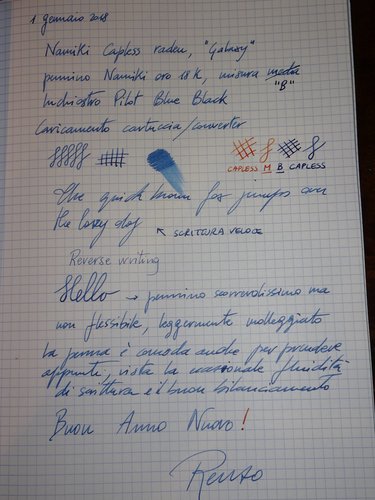 1 gennaio 2018
Namiki Capless raden, "Galaxy"
pennino Namiki oro 18K, misura media
"B"
Inchiostro Pilot Blue Black
Caricamento cartuccia/converter
CAPLESS M B CAPLESS
The quick brown fox jumps over
the lazy dog
SCRITTURA VELOCE
Reverse writing
Hello → pennino scorrevolissimo ma
non flessibile, leggermente molleggiato
La penna è comoda anche per prendere
appunti, vista la eccezionale fluidità
di scrittura e il buon bilanciamento
Buon Anno Nuovo!
Renzo